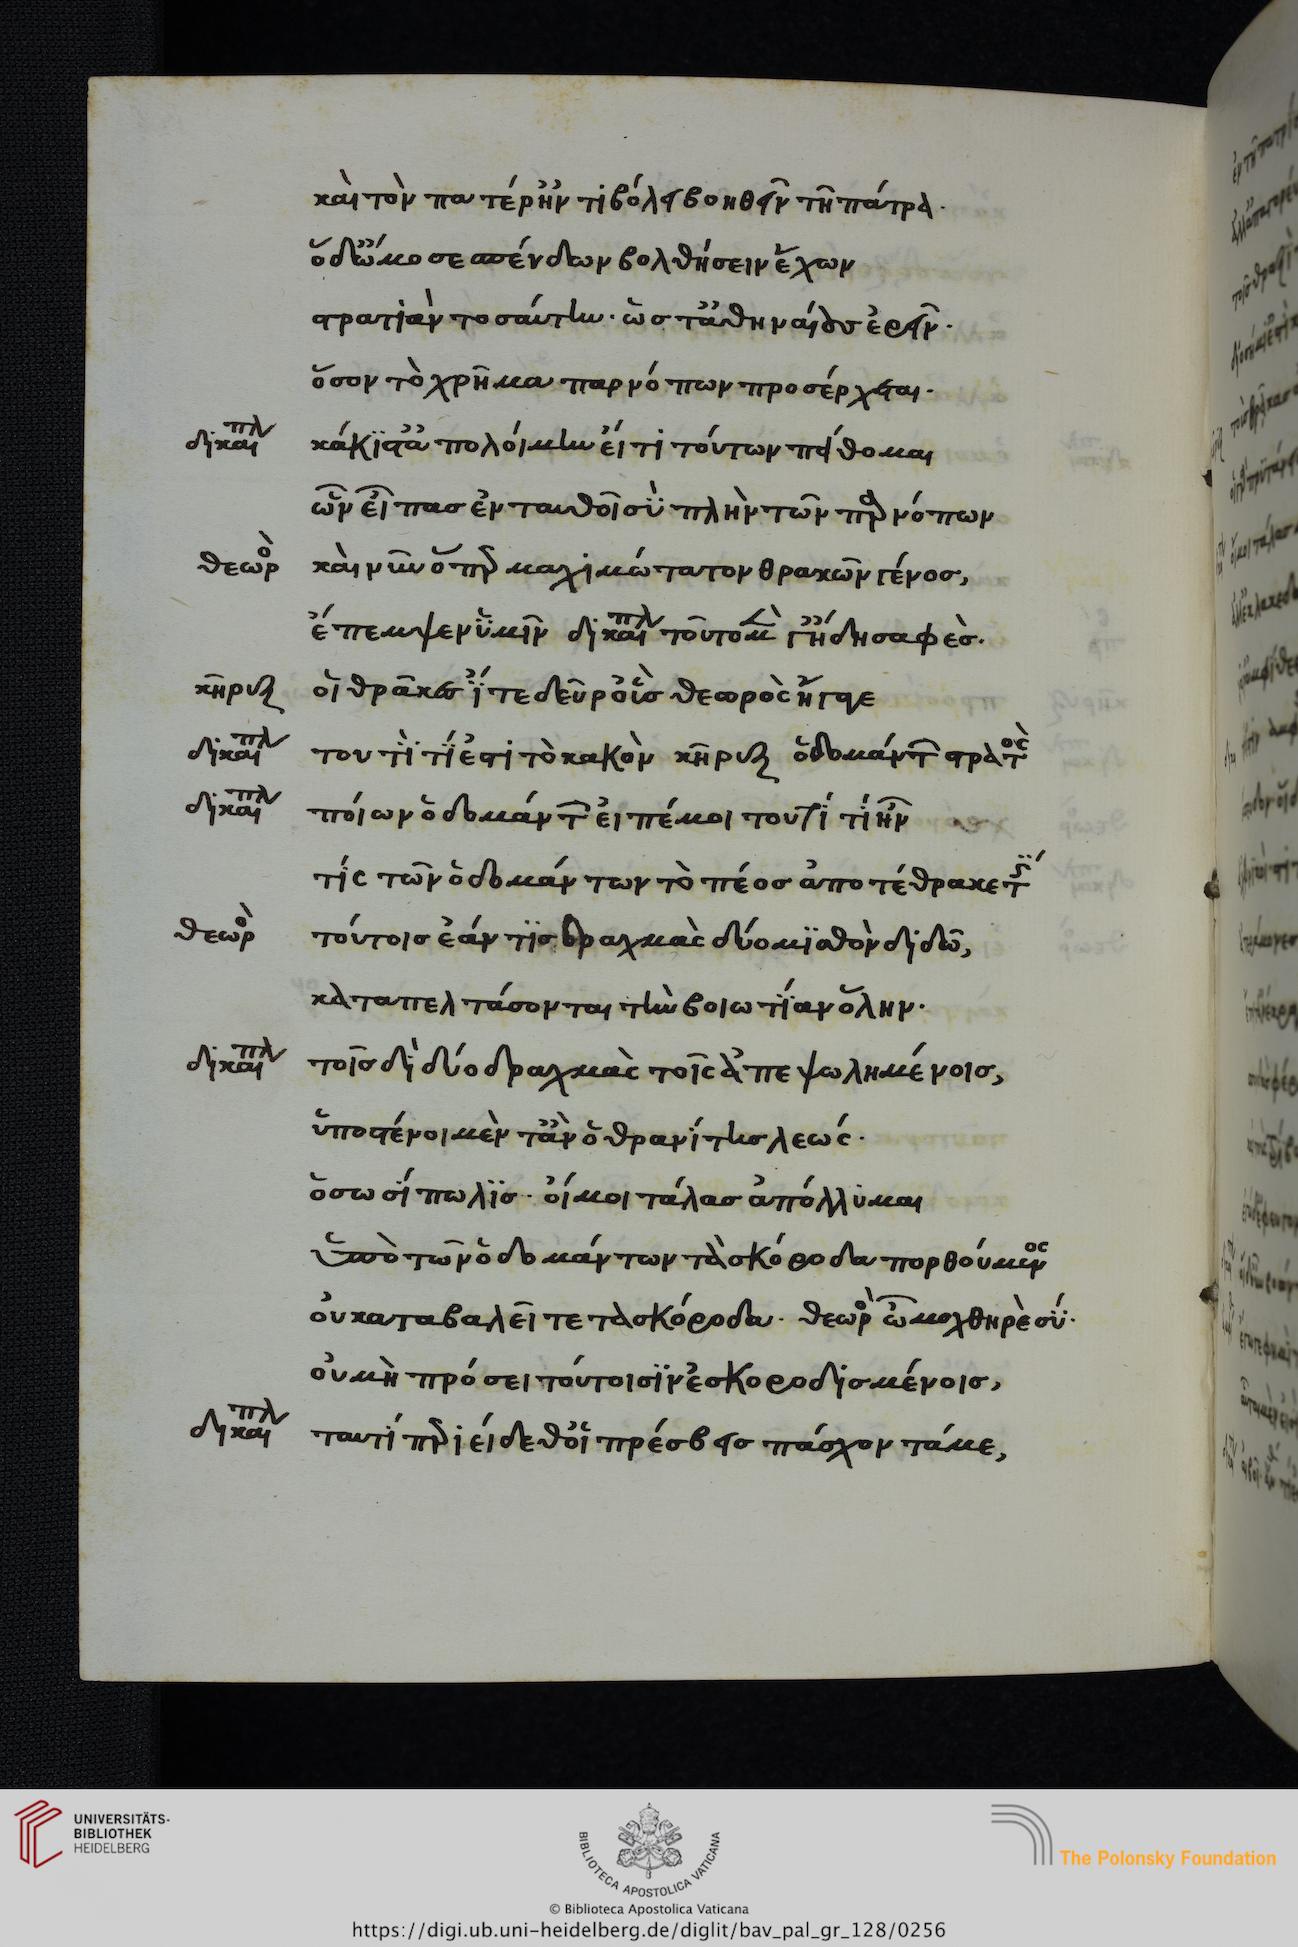 καὶ τὸν πατέρ' ἠντιβόλει βοηθεῖν τῇ πάτρα·
ὅδ' ὤμοσε σπένδων βολθήσειν ἔχων
στρατιὰν τοσαύτην· ὥστ' ἀθηναίους ἐρεῖν·
ὅσον τὸ χρῆμα παρνόπων προσέρχεται·
δικαι πλ κάκιστ' ἀπολοίμην εἴ τι τούτων πείθομαι
ὧν εἶπας ἐνταυθοῖ σὺ πλὴν τῶν παρνόπων
θεωρὸ καὶ νῦν ὅπερ μαχιμώτατον θρακῶν γένος,
ἔπεμψεν ὑμῖν δικαι πλ τοῦτο μὲν γ' ἤδη σαφὲς.
κῆρυξ οἱ θρᾶκες ἴτε δεῦρ' οὓς θεωρὸς ἤγαγε
δικαι πλ τουτὶ τί ἐστι τὸ κακὸν κῆρυξ ὀδομάντων στρατὸς
δικαι πλ ποίων ὀδομάντων εἰπέ μοι τουτί τί ἦν
τίς τῶν ὀδομάντων τὸ πέος ἀποτέθρακε
θεωρὸ τούτοις ἐάν τις δραχμὰς δύο μισθὸν διδῶ,
καταπελτάσονται τὴν βοιωτίαν ὅλην·
δικαι πλ τοῖσδὶ δύο δραχμὰς τοῖς ἀπεψωλημένοις,
ὑποστένοι μὲν τἂν ὁ θρανίτης λεώς·
ὁ σωσίπωλις· οἴμοι τάλας ἀπόλλυμαι
ὑπὸ τῶν ὀδομάντων τὰ σκόροδα πορθούμενος
οὐ καταβαλεῖτε τὰ σκόροδα· θεωρὸ ὦ μοχθηρὲ σύ·
οὐ μὴ πρόσει τούτοισιν ἐσκοροδισμένοις,
δικαι πλ ταυτί περιείδεθ' οἱ πρέσβεις πάσχοντά με,
UNIVERSITÄTS-
BIBLIOTHEK
HEIDELBERG
BIBLIOTECA APOSTOLICA VATICANA
The Polonsky Foundation
© Biblioteca Apostolica Vaticana
https://digi.ub.uni-heidelberg.de/diglit/bav_pal_gr_128/0256